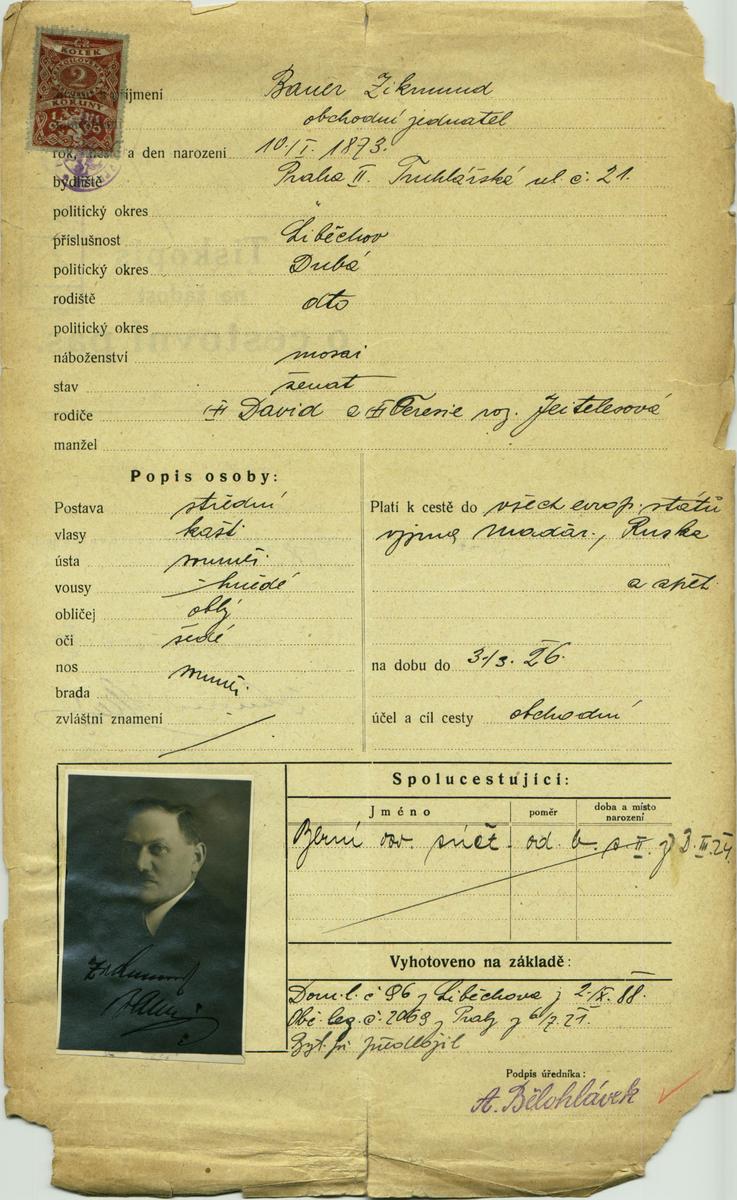 KOLEK
2
KORUNY
jmení Bauer Zikmund
obchodní jednatel
rok, a den narození 10./I. 1873.
bydliště Praha II. Truhlářská ul. č. 21.
politický okres "
příslušnost Liběchov
politický okres Dubá
rodiště dto
politický okres
náboženství mosai
stav ženat
rodiče David a Teresie roz. Jeitelesová
manžel
Popis osoby:
Postava střední
vlasy kašt.
ústa
vousy hnědé
obličej oblý
oči šedé
nos
brada
zvláštní znamení
Platí k cestě do všech evrop. států
vyjma Maďar., Ruska
a zpět.
na dobu do 3./3. 26.
účel a cíl cesty obchodní
Spolucestující:
Jméno poměr doba a místo narození
Berní od
Vyhotoveno na základě:
Dom. l. č 96 z Liběchova z 2./IX. 88.
Obč. leg. č. 2069 z Prahy z 6/7. 21.
předložil
Zikmund
Bauer
Podpis úředníka:
A. Bělohlávek